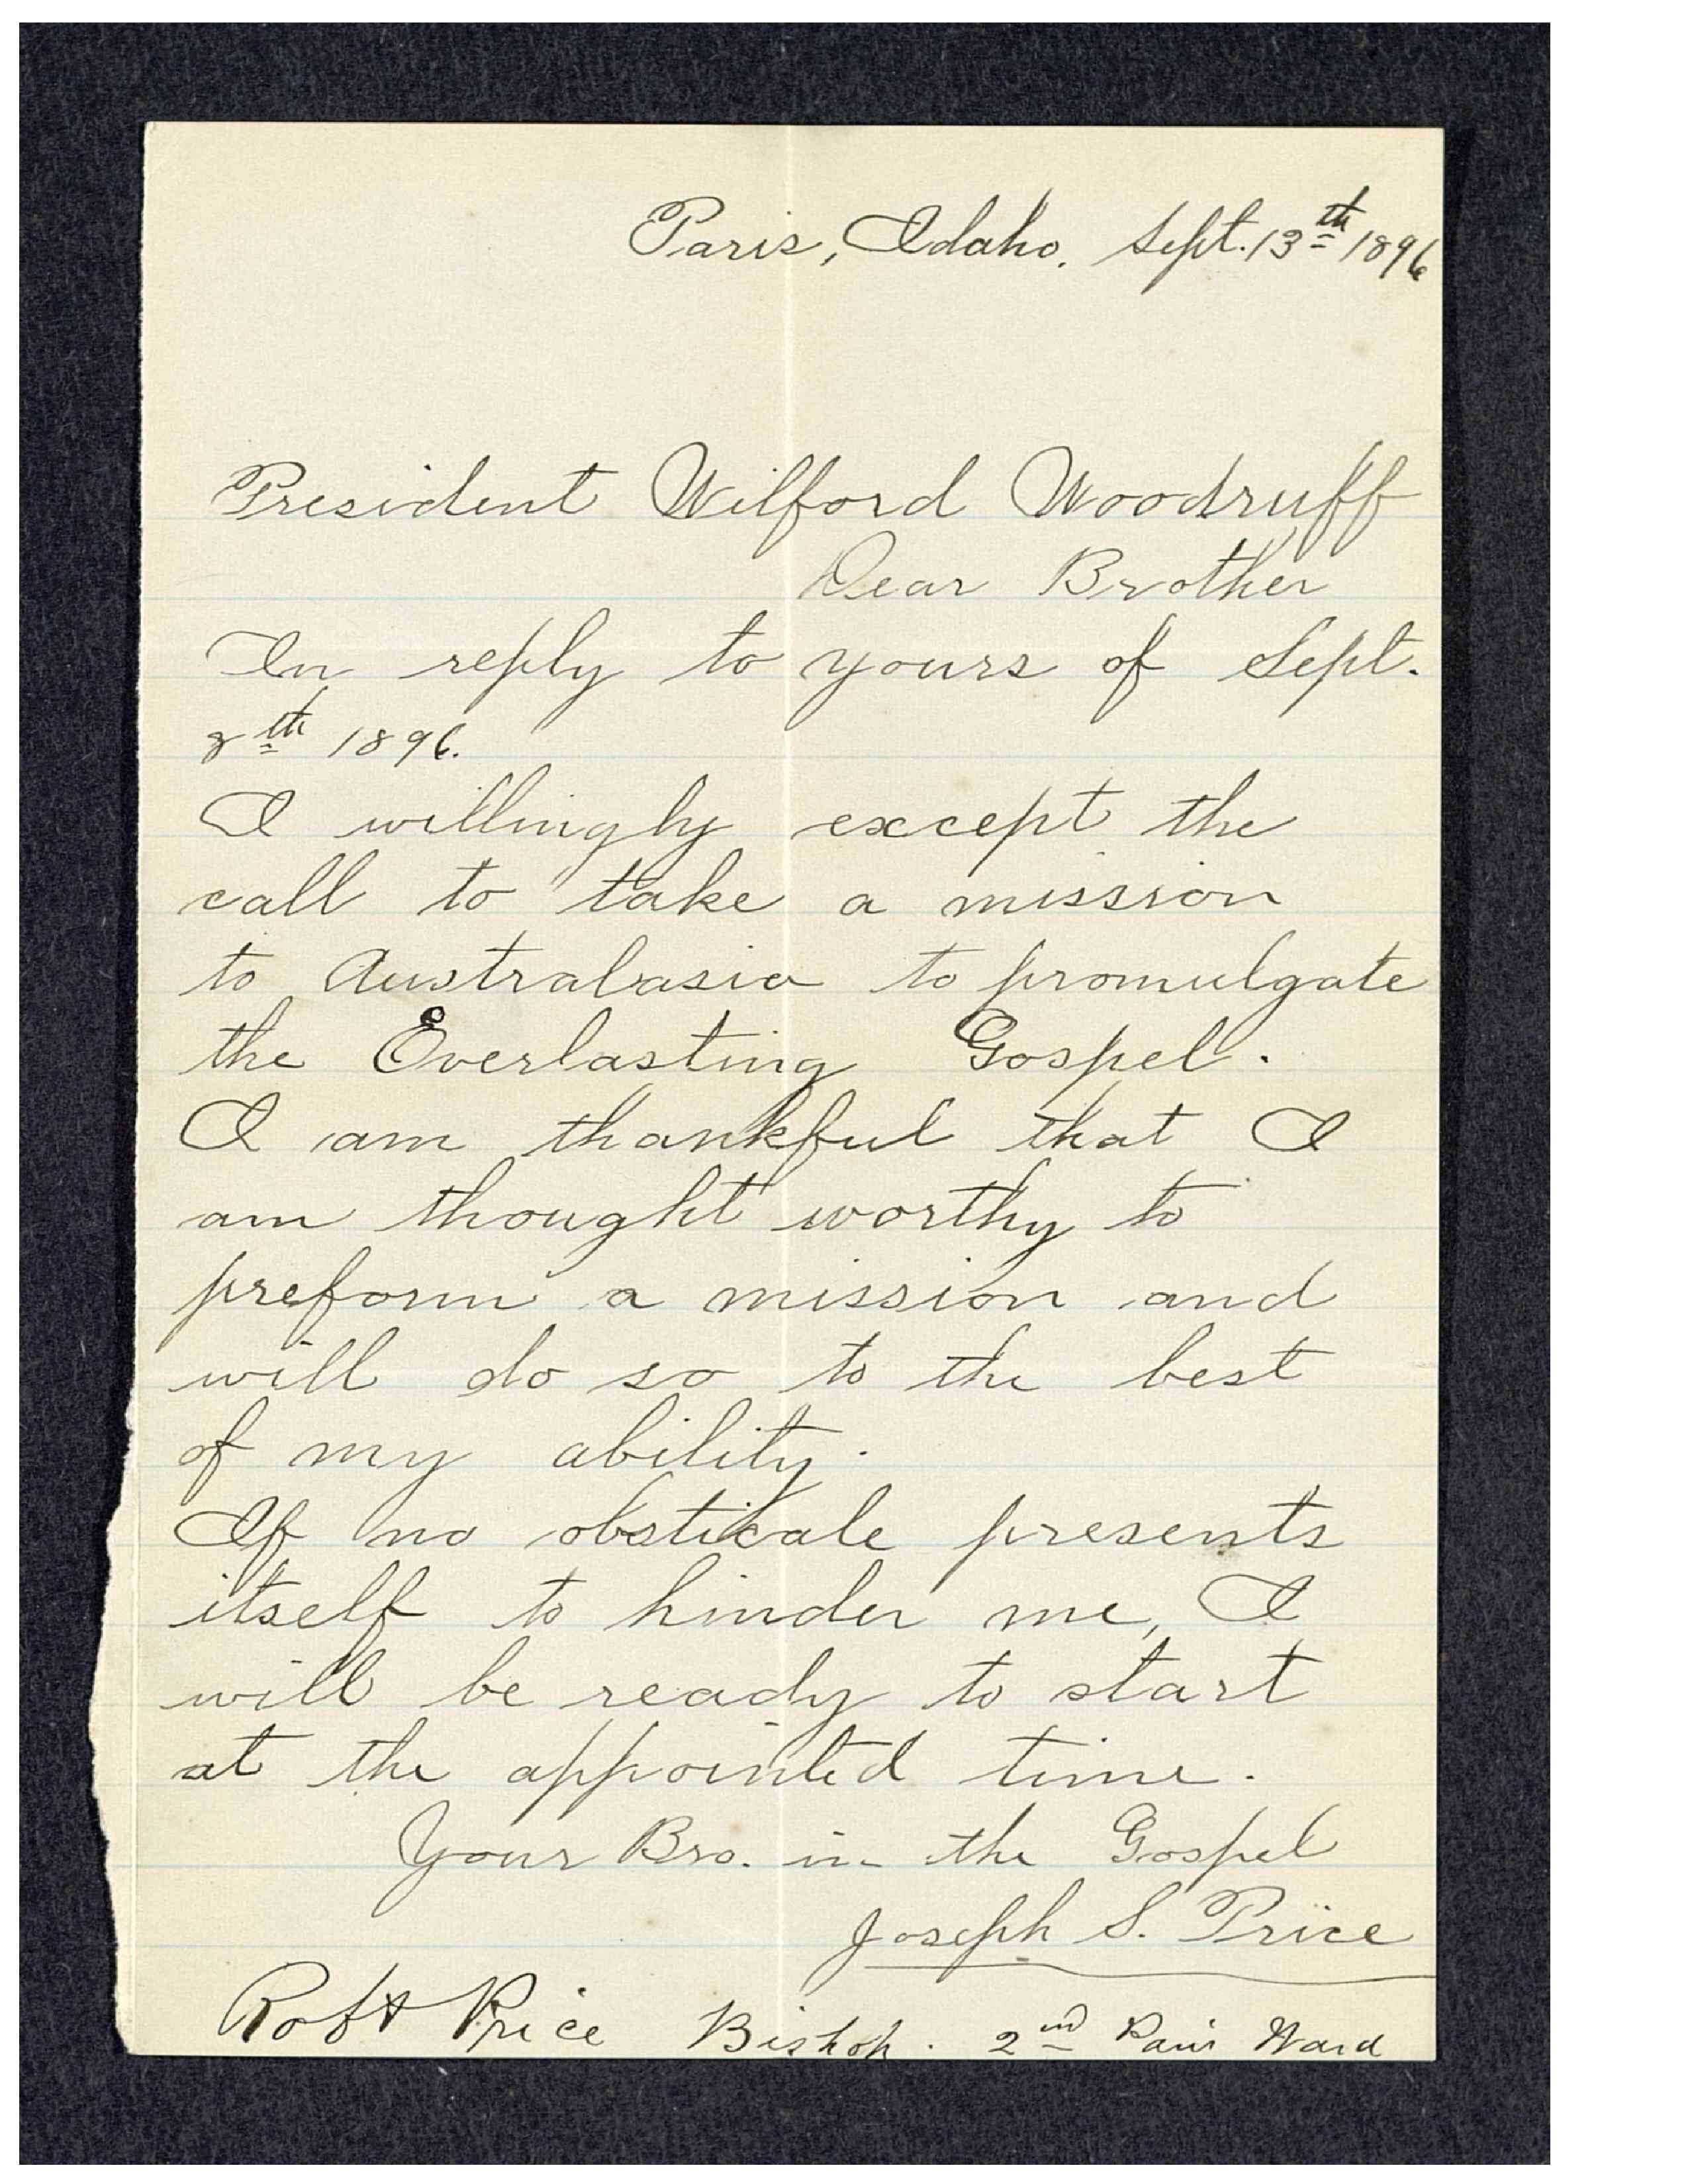 Paris, Idaho. Sept. 13th 1896
President Wilford Woodruff
Dear Brother
In reply to yours of Sept.
8th 1896.
I willingly except the
call to take a mission
to Australasia to promulgate
the Everlasting Gospel.
I am thankful that I
am thought worthy to
preform a mission and
will do so to the best
of my ability.
If no obsticale presents
itself to hinder me, I
will be ready to start
at the appointed time.
Your Bro. in the Gospel
Joseph S. Price
Robt Price Bishop. 2nd Paris Ward